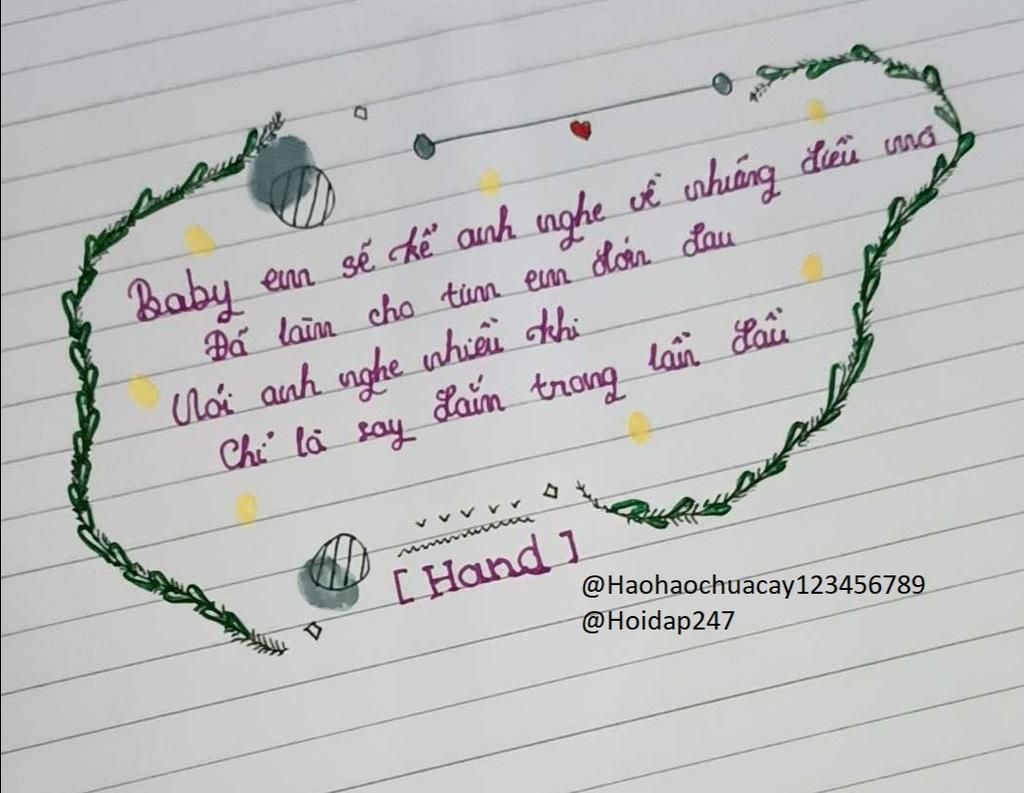 Baby em sẽ kể anh nghe về những điều mơ
Đã làm cho tim em đớn đau
Nói anh nghe nhiều khi
Chỉ là say đắm trong lần đầu
[Hand]
@Haohaochuacay123456789
@Hoidap247